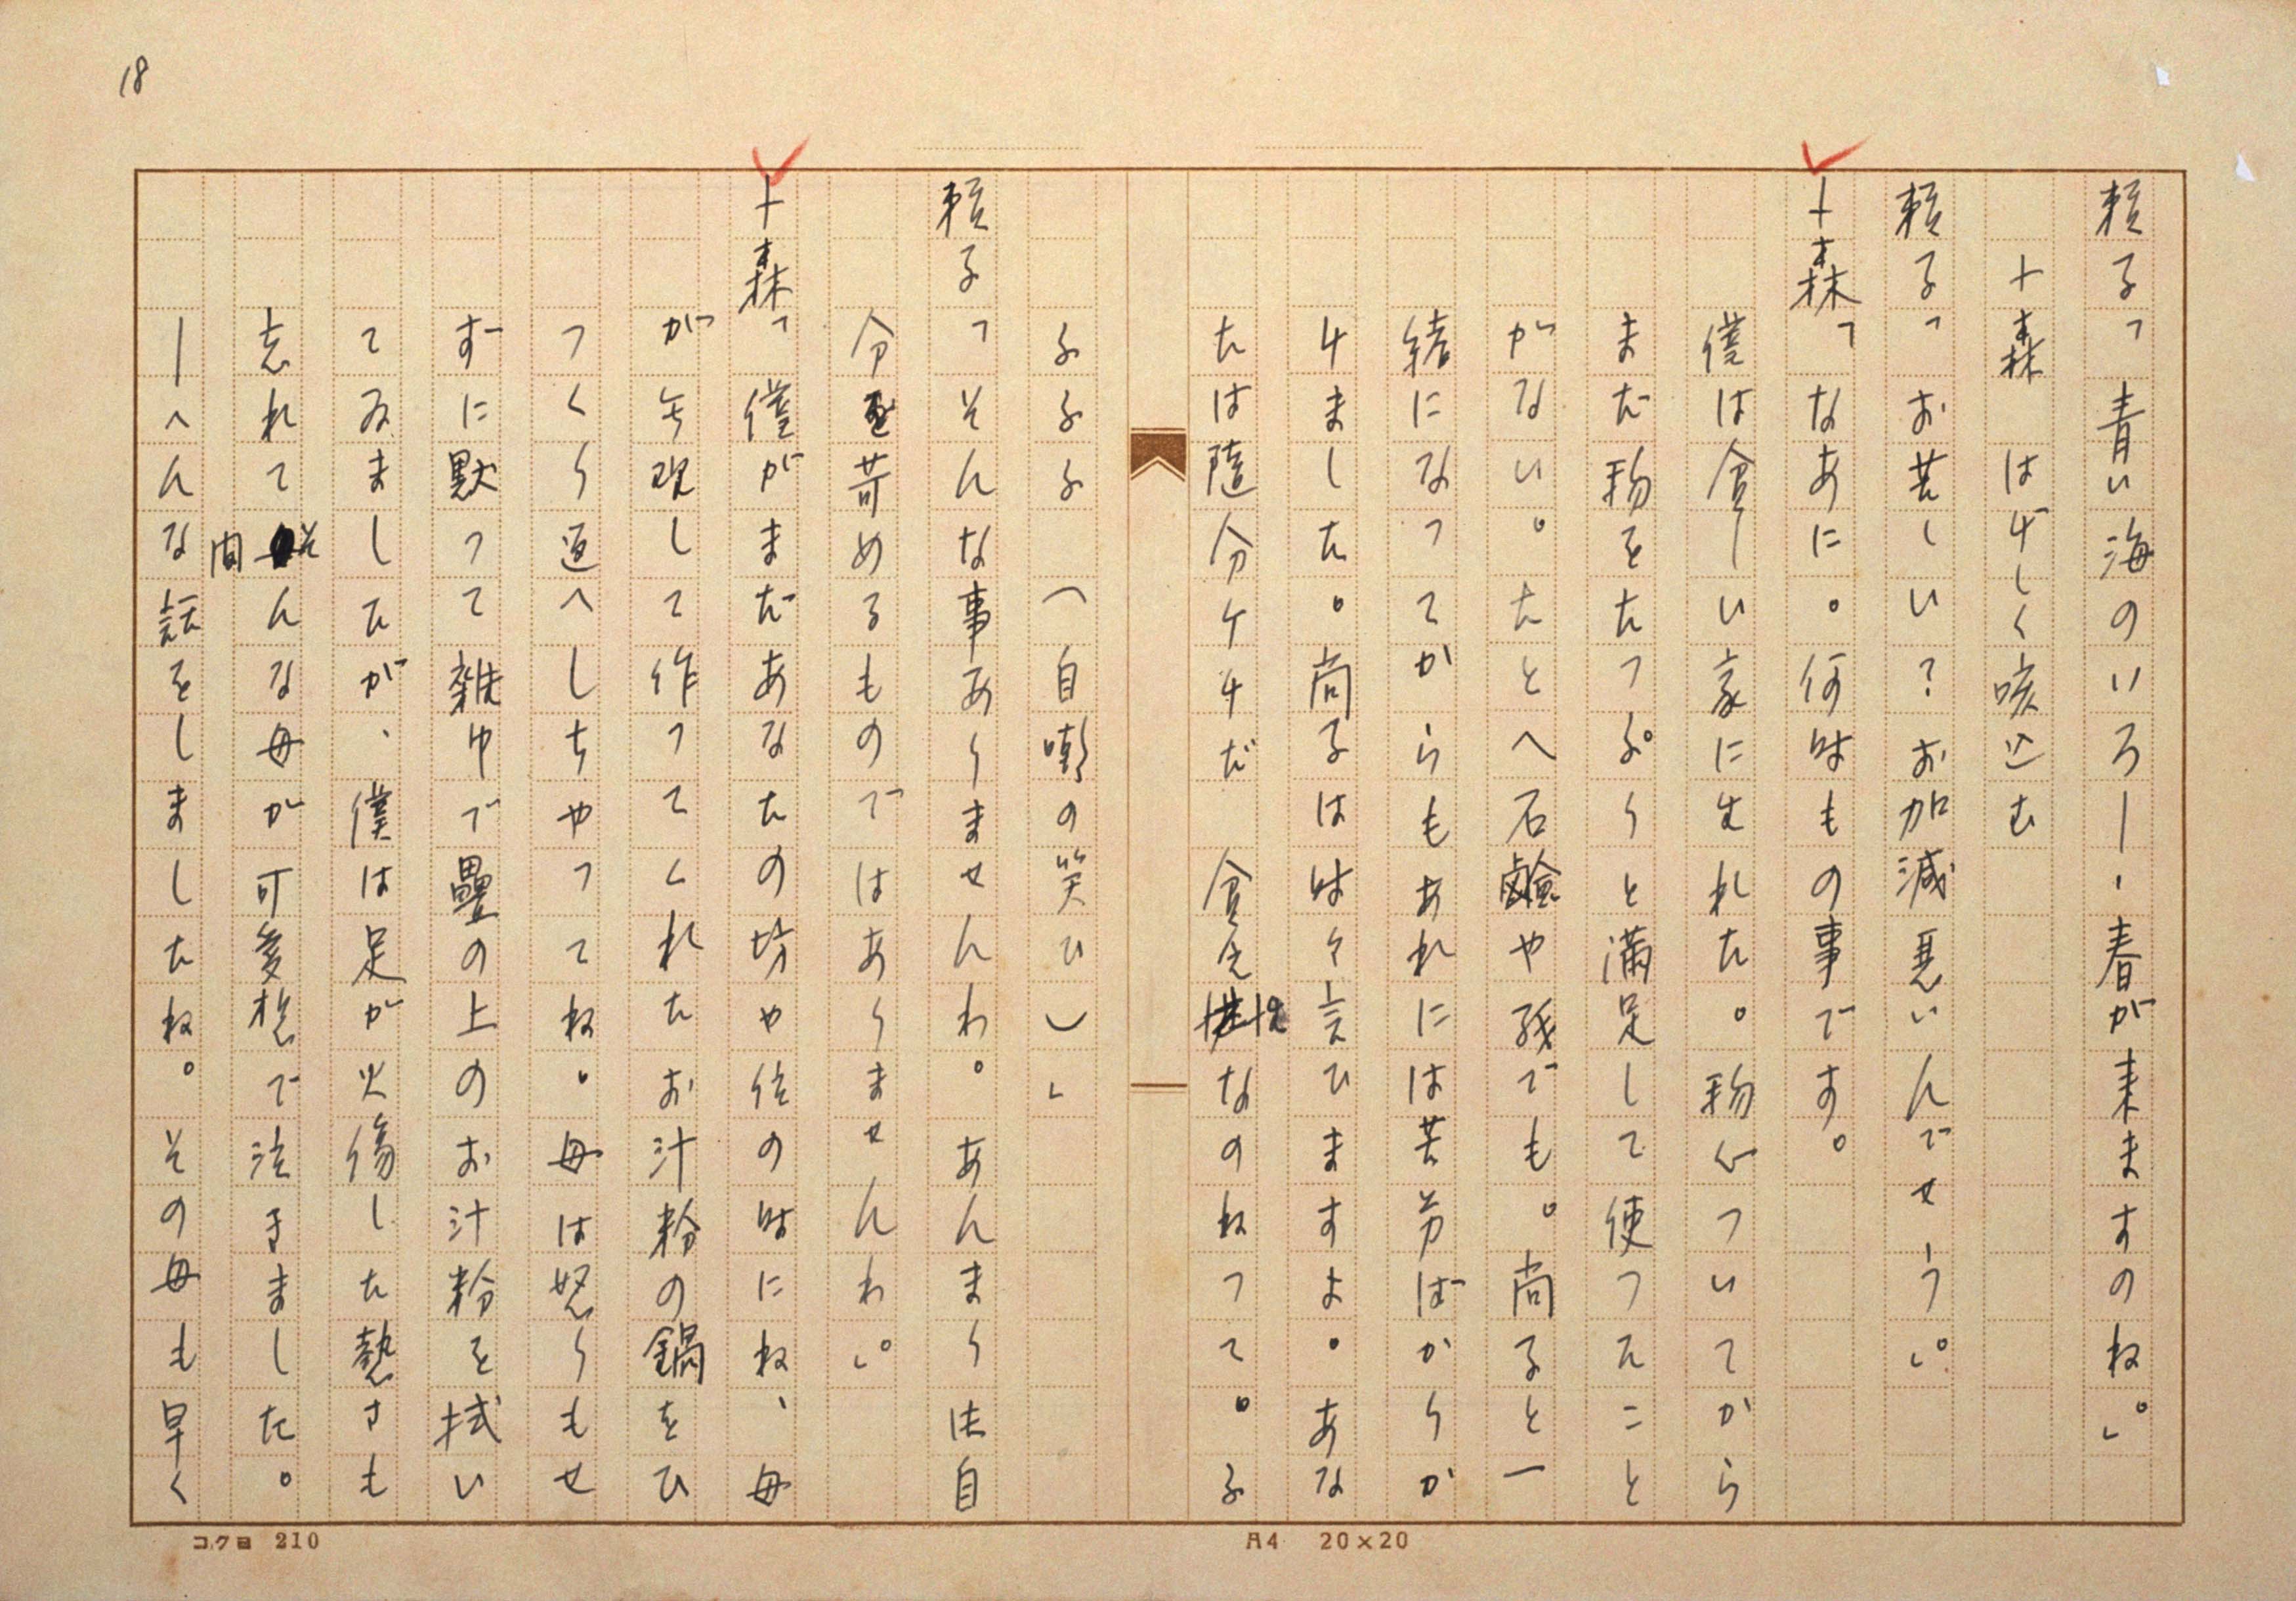 18
頼子「青い海のいろ―・春が来ますのね。」
十森 はげしく咳込む
頼子「お苦しい？お加減悪いんでせう。」
十森「なあに。何時もの事です。
僕は貧しい家に生れた。物心ついてから
まだ物をたつぷりと満足して使つたこと
がない。たとへ石鹸や紙でも。尚子と一
緒になつてからもあれには苦労ばかりか
けました。尚子は時々言ひますよ。あな
たは随分ケチだ 貧乏性なのねつて。ふ
ふふふ（自嘲の笑ひ）」
頼子「そんな事ありませんわ。あんまり御自
分を苛めるものではありませんわ。」
十森「僕がまだあなたの坊や位の時にね、母
が無理して作つてくれたお汁粉の鍋をひ
つくり返へしちやつてね。母は怒りもせ
ずに默つて雑巾で疊の上のお汁粉を拭い
てゐましたが、僕は足が火傷した熱さも
忘れて そんな母が可哀想で泣きました。
間
―へんな話をしましたね。その母も早く
コクヨ 210
A4 20×20